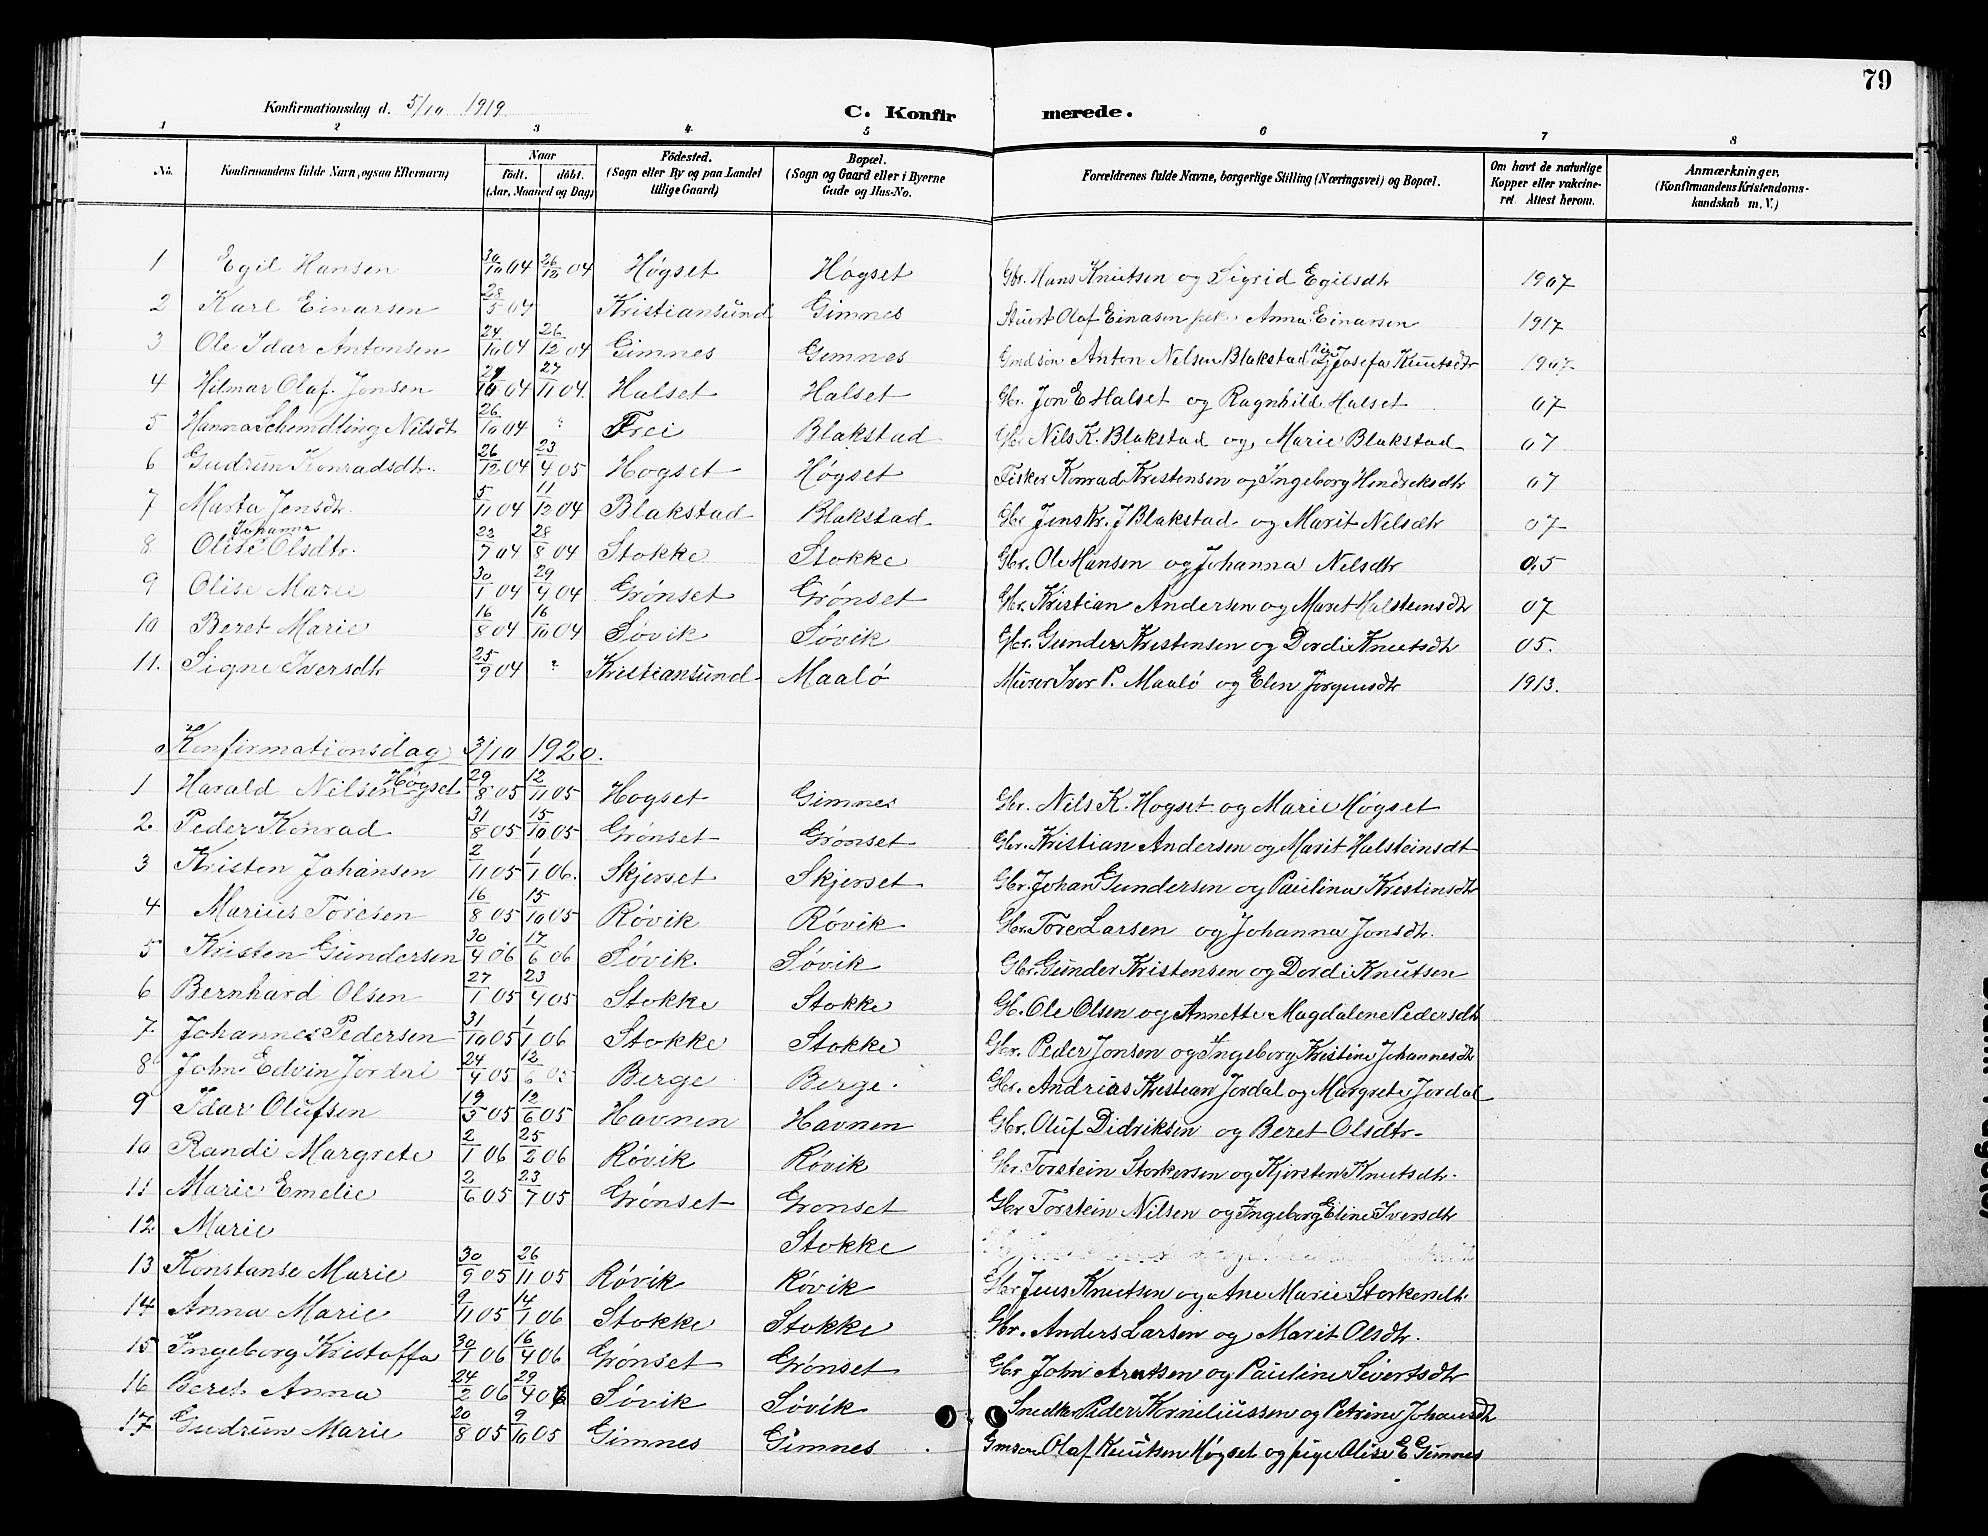 79
Konfirmationsdag d. 5/10 1919. C. Konfirmerede.
1 2 3 4 5 6 7 8
No. Konfirmandens fulde Navn, ogsaa Efternavn) Naar født. døbt. (Aar, Maaned og Dag) Födested. (Sogn eller By og paa Landet tillige Gaard) Bopæl. (Sogn og Gaard eller i Byerne Gade og Hus-No. Forældrenes fulde Navne, borgerlige Stilling (Næringsvei) og Bopæl. Om havt de naturlige Kopper eller vakcineret Attest herom. Anmærkninger. (Konfirmandens Kristendomskundskab m. V.)
1 Egil Hansen 30/10 04 26/12 04 Høgset Høgset Gbr. Hans Knutsen og Sigrid Egilsdtr 1907
2 Karl Einarsen 28/5 04 Kristiansund Gimnes Olaf Einasen Anna Einarsen 1917
3 Ole Idar Antonsen 24/10 04 26/12 04 Gimnes Gimnes Anton Nilsen Blakstad og Josefa Knutsdtr 1907
4 Hilmar Olaf Jonsen 10 04 27/11 04. Halset Halset Gbr. Jon E Halset og Ragnhild Halset 07
5 Hanna Schmedling Nilsdt 26/10 04 " Frei Blakstad Gbr Nils K. Blakstad og Marie Blakstad 07
6 Gudrun Konradsdtr. 26/12 04 23/4 05 Hogset Høgset Fisker Konrad Kristensen og Ingeborg Hendriksdtr 07
7 Marta Jensdtr. 5/11 04 11/12 04 Blakstad Blakstad Gbr Jens Kr. J Blakstad og Marit Nilsdtr 07
8 Olise Johanna Olsdtr. 23/7 04 28/8 04 Stokke Stokke Gbr. Ole Hansen og Johanna Nilsdtr 05
9 Olise Marie 30/1 04 29/4 04 Grønset Grønset Gbr. Kristian Andersen og Marit Halsteinsdtr 07
10 Beret Marie 16/8 04 16/10 04 Søvik Søvik Gbr. Gunder Kristensen og Dordi Knutsdtr 05.
11. Signe Iversdtr 25/9 04 " Kristiansund Maalø Murer Iver P. Maalø og Elen Jørgensdtr 1913.
Konfirmationsdag 3/10 1920.
1 Harald Nilsen Høgset 29/8 05 12/11 05 Hogset Gimnes Gbr. Nils K. Hogset og Marie Høgset
2 Peder Konrad 31/8 05 15/10 05 Grønset Grønset Gbr. Kristian Andersen og Marit Halsteinsdt
3 Kristen Johansen 2/11 05 1/1 06. Skjerset Skjerset Gbr. Johan Gundersen og Paulina Kristinsdtr
4 Marius Toresen 16/8 05 15/10 05 Røvik Røvik Gbr. Tore Larsen og Johanna Jonsdtr.
5 Kristen Gundersen 30/4 06 17/6 06 Søvik. Søvik Gbr. Gunder Kristensen og Dordi Knutsen
6 Bernhard Olsen 27/1 05 23/4 05 Stokke Stokke Gb. Ole Olsen og Annette Magdalene Pedersdtr
7 Johannes Pedersen 31/10 05 1/1 06 Stokke Stokke Gbr. Peder Jonsen og Ingeborg Kristine Johannesdtr
8 John Edvin Jordal 24/4 05 12/6 05 Berge Berge. Gbr. Andrias Kristian Jordal og Margrete Jordal
9 Idar Olufsen 19/5 05 12/6 05 Havnen Havnen Gbr. Oluf Didriksen og Beret Olsdtr.
10 Randi Margrete 2/1 06 25/2 06 Røvik Røvik Gbr. Torstein Storkersen og Kjersten Knutsdtr.
11 Marie Emelie 2/6 05 23/7 05 Grønset Gronset Gbr Torstein Nilsen og Ingeborg Eline Iversdtr
12 Marie Stokke
13 Konstanse Marie 30/9 05 26/11 05 Røvik Røvik Gbr Jens Knutsen og Ane Marie Storkersdtr.
14 Anna Marie 9/11 05 14/1 06 Stokke Stokke Gbr. Anders Larsen og Marit Olsdtr.
15 Ingeborg Kristoffa 30/1 06 16/4 06 Grønset Grønset Gbr John Arntsen og Pauline Sivertsdtr
16 Beret Anna 24/2 06 29/4 06 Søvik Søvik Snedker Peder Korneliussen og Petrine Johansdtr
17 Gudrun Marie 20/8 05 9/10 05 Gimnes Gimnes Olaf Knutsen Høgset og pige Olise E Gimnes